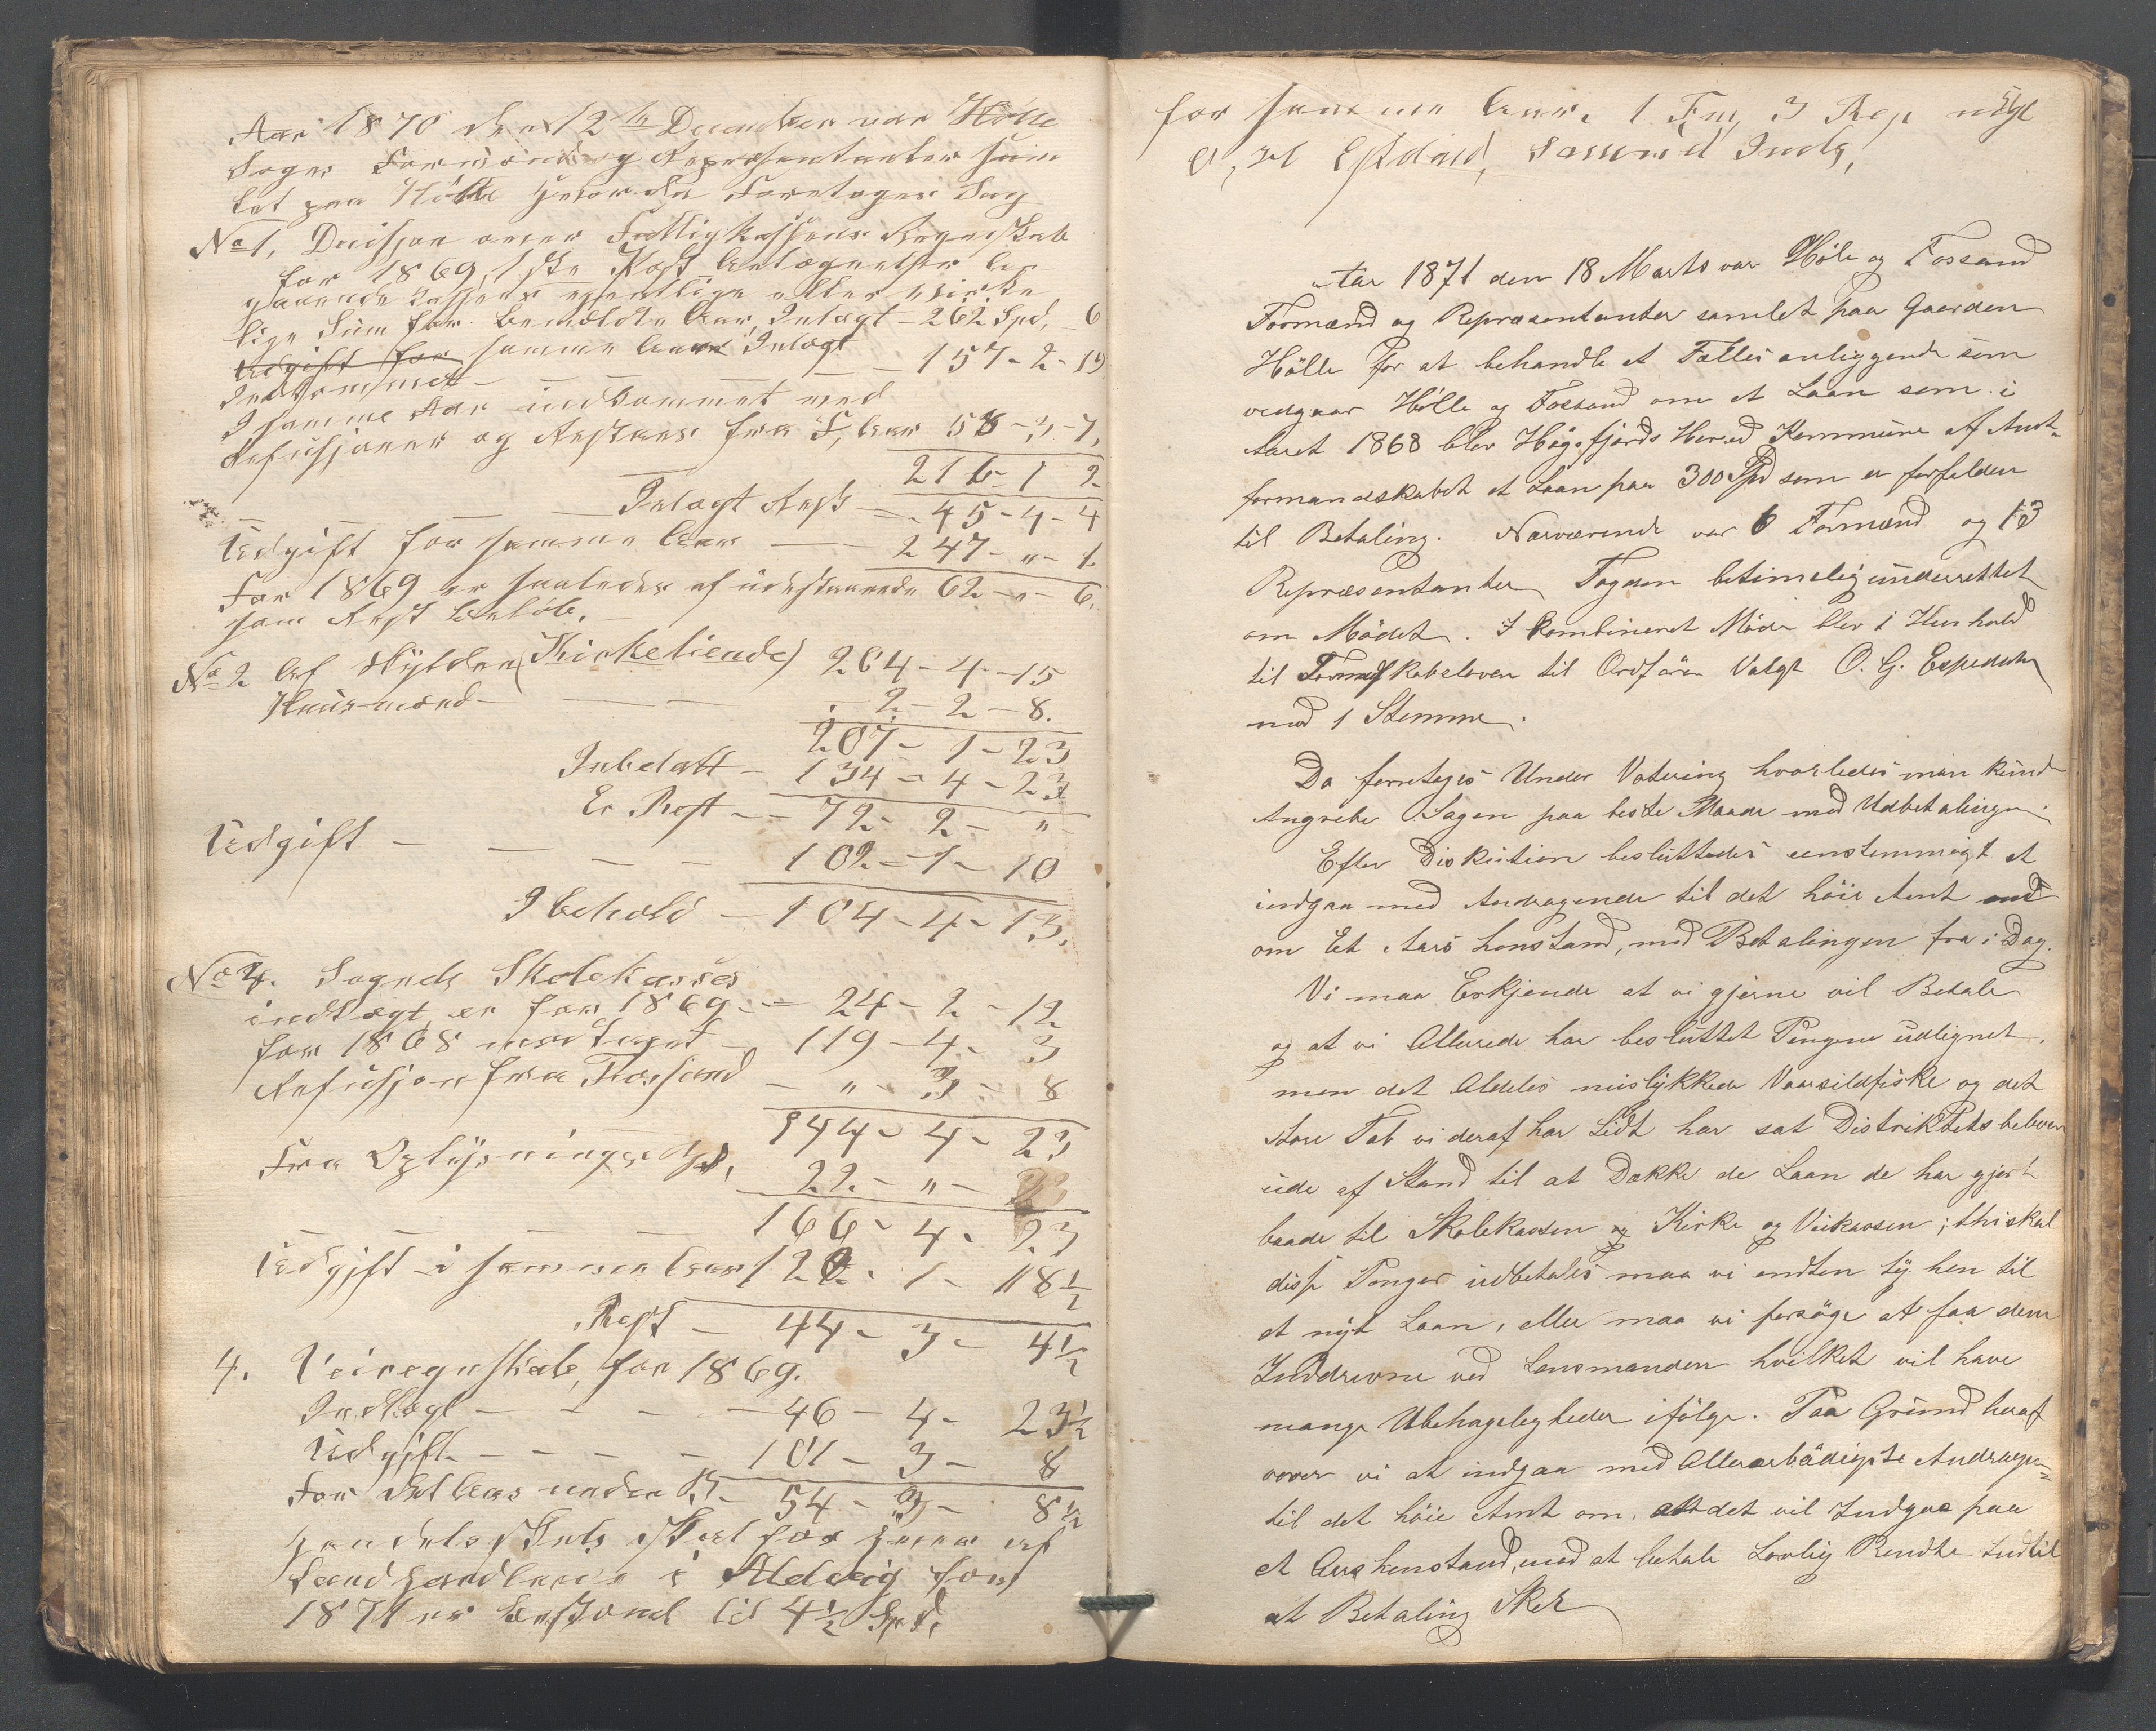 Aar 1870 den 12te December var Hölle
Sogns Formænd og Repræsentanter sam
let paa Hölle hvor da Foretoges Sag
No 1, Decisjon over Fattigkassens Regnskab
for 1869, 1ste Post Antegnelser An
gaaende Kassens egentlige eller virke
lige Sum for bemældte Aar, Inlægt - 262 Spd, 6
Udgift for samme Aar Inlægt
Indkommet - 157 - 2 - 19
I samme Aar indkommet ved
Refusjoner og Restans fra F, Aar 58 - 3 - 7,
216 - 1 2
Inlægt Rest - 45 - 4 - 4
Udgift for samme Aar - 247 - " - 1
For 1869 er saaledes af udestaaende 62 - " - 6,
som Rest Beløb.
No 2 Af Skylden (Kirketiende) 204 - 4 - 15
Huusmænd - 2 - 2 - 8.
207 - 1 - 23
Inbetalt - 134 - 4 - 23
Er Rest - 72 - 2 - "
Udgift - 102 - 1 - 10
I behold - 104 - 4 - 13,
No 4. Sognets Skolekasses
indtægt er for 1869 - 24 - 2 - 12
for 1868 modtaget - 119 - 4 - 3
Refusjon fra Fossand - " - 3 - 8
144 - 4 - 23
Fra Oplysningsvds, 22 - " -
166 - 4 - 23
Udgift i samme Aar 122 - 1 - 18½
Rest - 44 - 3 - 4½
4. Veiregnskab, for 1869.
Indtægt - 46 - 4 - 23½
Udgift - 101 - 3 - 8
For det Aar under B. - 54 - 3 - 8½
Handels Skats Skal for hver af
Landhandlerne i Aldvig for
1871 er bestemt til 4½ Spd,
for samme Aar. 1 Fm, 3 Rep
Espedal, Fossand Inds,
Aar 1871 den 18 Marts var Höle og Fossand
Formænd og Repræsentanter samlet paa Gaarden
Hölle for at behandle et Fælles anliggende som
vedgaar Hölle og Fossand om et Laan som i
Aaret 1868 blev Högsfjords Hered Kommune af Amt-
formandskabet et Laan paa 300 Spd som er forfalden
til Betaling. Nærværende var 6 Formænd og 13
Repræsentanter Fogden betimelig underrettet
om Mödet. I kombineret Möde blev i Henhold
til Formskabsloven til Ordförer Valgt O. G. Espedal
mod 1 Stemme.
Da forretoges Under Votering hvorledes man kunde
Angribe Sagen paa beste Maade med Udbetalingen.
Efter Diskution besluttedes eenstemmigt at
indgaa med Andragende til det höie Amt
om Et Aars henstand, med Betalingen fra i Dag.
Vi maa Erkjende at vi gjerne vil Betale
og at vi Allerede har besluttet Pengene udlignet,
men det Aldeles mislykkede Vaarsildfiske og det
store Tab vi deraf har Lidt har sat Distriktets beboere
ude af Stand til at Dække de Laan de har gjort
baade til Skolekassen og Kirke og Veikassen; thi skal
disse Penger udbetales maa vi endten ty hen til
et nyt Laan, eller maa vi forsöge at faa dem
Inddrevne ved Lensmanden hvilket vil have
mange Ubehageligheder ifölge. Paa Grund heraf
vover vi at indgaa med Allerærbödigste Andragen=
til det höie Amt om, at det vil Indgaa paa
et Aars henstand, mod at betale Lovlig Rendte Indtil
at Betaling Sker